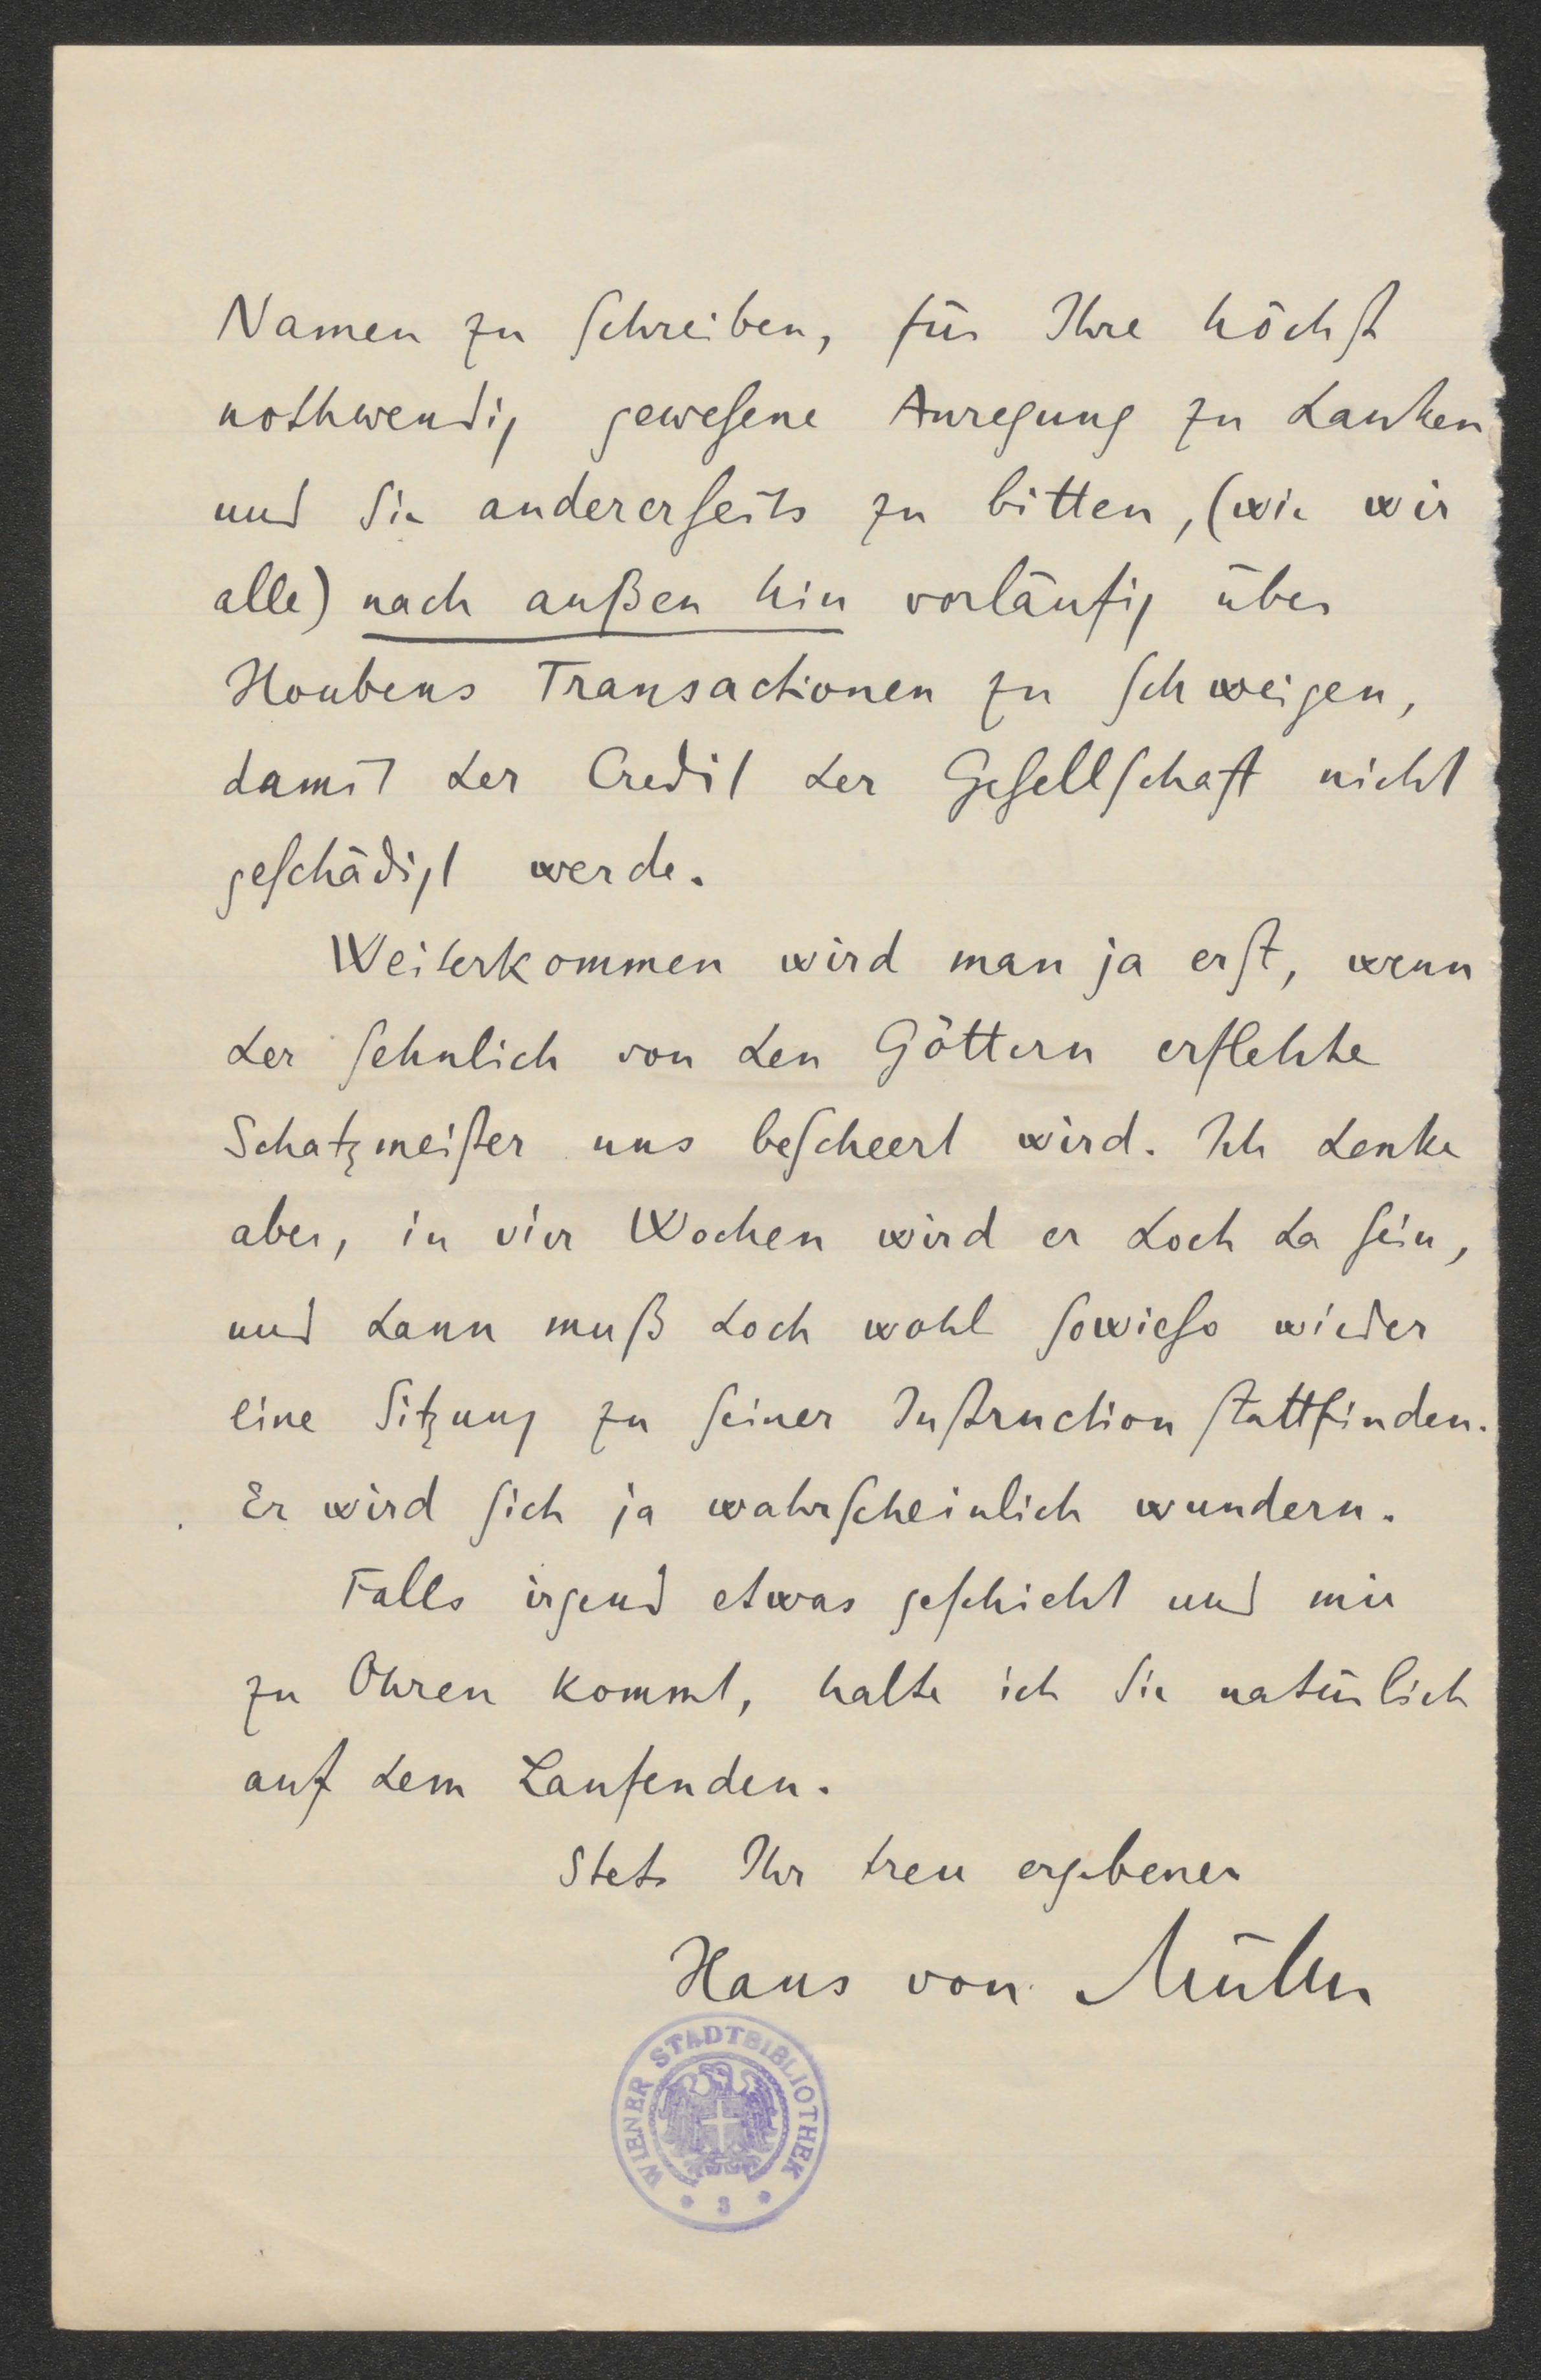 Namen zu schreiben, für Ihre höchst
nothwendig gewesene Anregung zu danken
und Sie andererseits zu bitten, (wie wir
alle) nach außen hin vorläufig über
Houbens Transactionen zu schweigen,
damit der Credit der Gesellschaft nicht
geschädigt werde.
Weiterkommen wird man ja erst, wenn
der sehnlich von den Göttern erflehte
Schatzmeister uns bescheert wird. Ich denke
aber, in vier Wochen wird er doch da sein,
und dann muß doch wohl sowieso wieder
eine Sitzung zu seiner Instruction stattfinden.
Er wird sich ja wahrscheinlich wundern.
Falls irgend etwas geschieht und mir
zu Ohren kommt, halte ich Sie natürlich
auf dem Laufenden.
Stets Ihr treu ergebener
Hans von Müller
WIENER STADTBIBLIOTHEK
* 3 *